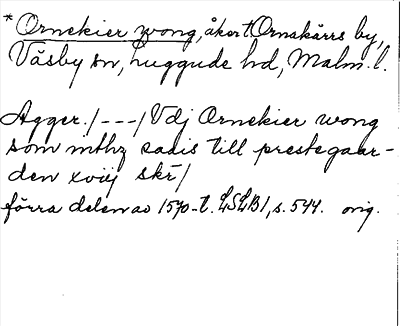 * Ornekier wong, åker t Ornakärrs by,
Väsby sn, Luggude hd, Malm. l.
Agger. / - - - / Vdj Ornekier wong
som mthz saais till prestegaar-
den xviij skr̄ /
förra delen av 1570-t. LSLB1, s. 544. orig.